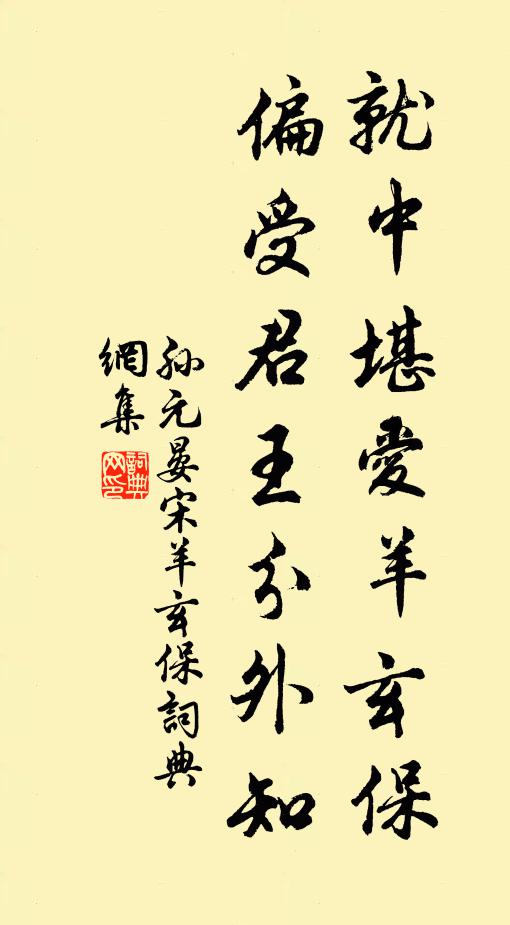 就中堪愛羊玄保
偏受君王分外知
孫元晏宋羊玄保詞典
網集
詞典
网印